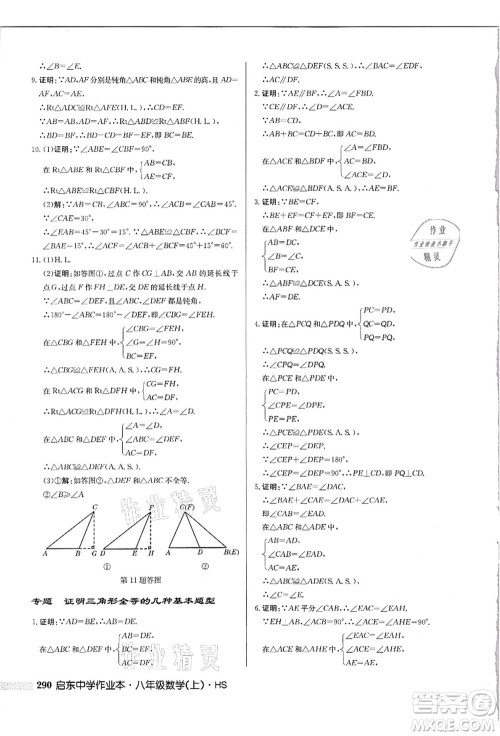 ∴∠ABC=∠DEF.
9. 证明:∵AD,AF 分别是钝角△ABC和钝角△ABE的高,且AD=AF,AC=AE,
∴Rt△ADC≌Rt△AFE(H.L.).
∴CD=EF.
∵AB=AB,AD=AF,∴Rt△ABD≌Rt△ABF(H.L.).
∴BD=BF.∴BD-CD=BF-EF,即BC=BE.
10. (1)证明:∵∠ABC=90°,∴∠CBF=90°.
在Rt△ABE和Rt△CBF中,
{AB=CB,
AE=CF,
∴Rt△ABE≌Rt△CBF(H.L.).
(2)解:∵AB=BC,∠ABC=90°,
∴∠CAB=∠ACB=45°.
∵∠CAE=30°,
∴∠BAE=45°-30°=15°.
∵Rt△ABE≌Rt△CBF,
∴∠BCF=∠BAE=15°.
∴∠ACF=∠BCF+∠ACB=15°+45°=60°.
11. (1)H.L.
(2)证明:如答图①,过点C作CG⊥AB交AB的延长线于点G,过点F作FH⊥DE交DE的延长线于点H.
∵∠ABC=∠DEF,且∠ABC,∠DEF都是钝角,
∴180°-∠ABC=180°-∠DEF,即∠CBG=∠FEH.
在△CBG和△FEH中,
{∠CBG=∠FEH,
∠G=∠H=90°,
BC=EF,
∴△CBG≌△FEH(A.A.S.).∴CG=FH.
在Rt△ACG和Rt△DFH中,
{CG=FH,
AC=DF,
∴Rt△ACG≌Rt△DFH(H.L.).∴∠A=∠D.
在△ABC和△DEF中,
{∠A=∠D,
∠ABC=∠DEF,
AC=DF,
∴△ABC≌△DEF(A.A.S.).
(3)①解:如答图②.
②∠B≥∠A.
C
F
C(F)
A
B
G
D
E
H
A
D
B(E)
①
②
第11题答图
专题 证明三角形全等的几种基本题型
1. 证明:∵AD=BE,∴AB=DE.
在△ABC和△DEF中,
{AB=DE,
AC=DF,
BC=EF,
∴△ABC≌△DEF(S.S.S.).∴∠A=∠EDF.
∴AC∥DF.
2. 证明:∵AE∥BF,∴∠A=∠DBF.
∵AB=CD,∴AB+BC=CD+BC,即AC=BD.
在△ACE和△BDF中,
{AC=BD,
∠A=∠DBF,
AE=BF,
∴△ACE≌△BDF(S.A.S.).
3. 证明:∵BF=CE,
∴BF+EF=CE+EF,即BE=CF.
在△ABE和△DCF中,
{AB=DC,
∠B=∠C,
BE=CF,
∴△ABE≌△DCF(S.A.S.).
∴∠AEB=∠DFC.
∴AE∥DF.
4. 证明:在△PCQ和△PDQ中,
{PC=PD,
PQ=PQ,
CQ=DQ,
∴△PCQ≌△PDQ(S.S.S.).
∴∠CPQ=∠DPQ.
在△PCE和△PDE中,
{PC=PD,
∠CPE=∠DPE,
PE=PE,
∴△PCE≌△PDE(S.A.S.).
∴∠CEP=∠DEP.
∵∠CEP+∠DEP=180°,
∴∠CEP=∠DEP=90°.∴PE⊥CD,即PQ⊥CD.
5. 证明:∵∠BAE=∠DAC,
∴∠BAE+∠CAE=∠DAC+∠CAE,
即∠CAB=∠EAD.
在△ABC和△ADE中,
{AB=AD,
∠CAB=∠EAD,
AC=AE,
∴△ABC≌△ADE(S.A.S.).
6. 证明:∵AE平分∠BAC,∴∠BAE=∠CAE.
在△ABE和△ACE中,
{AB=AC,
∠BAE=∠CAE,
AE=AE,
作业
作业精灵不缺学
精灵
作业精灵
作业精灵
290 启东中学作业本·八年级数学(上)·HS